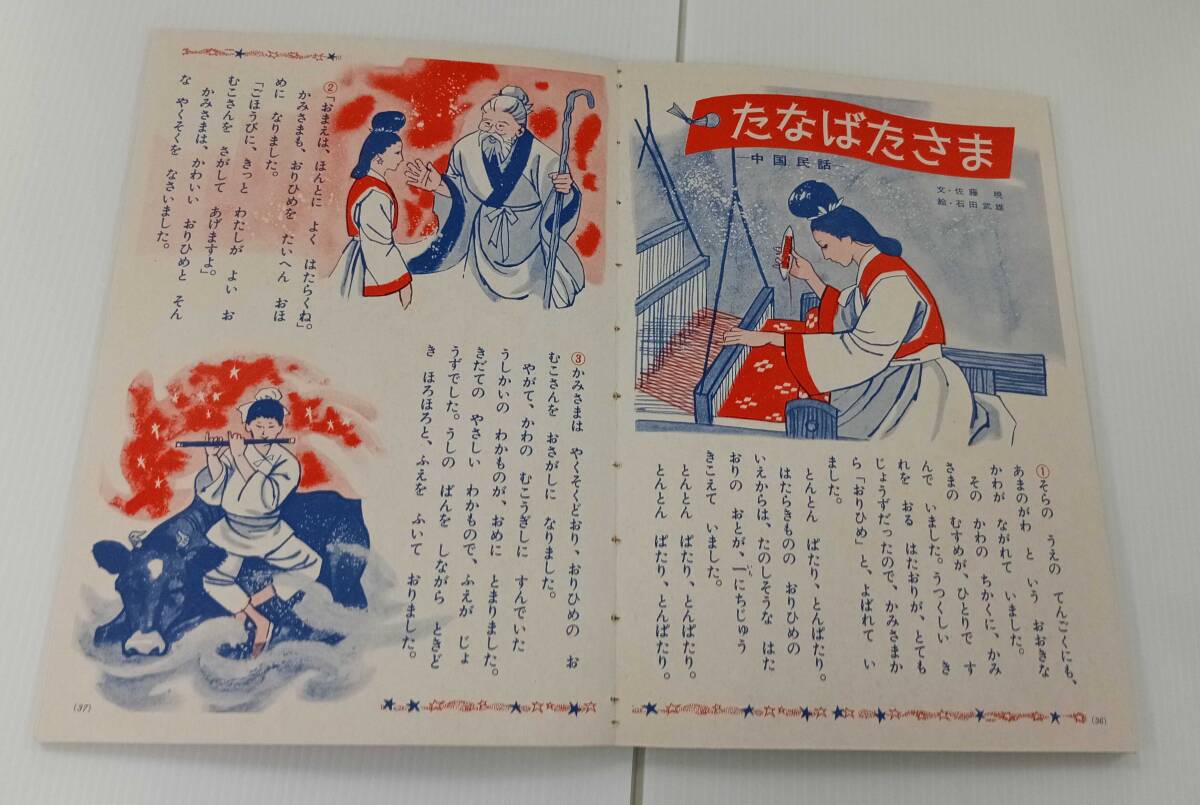 たなばたさま
中国民話
文・佐藤 暁
絵・石田武雄
①そらの うえの てんごくにも、
あまのがわ と いう おおきな
かわが ながれて いました。
その かわの ちかくに、かみ
さまの むすめが、ひとりで す
んで いました。うつくしい き
れを おる はたおりが、とても
じょうずだったので、かみさまか
ら「おりひめ」と、よばれて い
ました。
とんとん ぱたり、とんぱたり。
はたらきものの おりひめの
いえからは、たのしそうな はた
おりの おとが、一にちじゅう
いち
きこえて いました。
とんとん ぱたり、とんぱたり。
とんとん ぱたり、とんぱたり。
(36)
②「おまえは、ほんとに よく はたらくね」。
かみさまも、おりひめを たいへん おほ
めに なりました。
「ごほうびに、きっと わたしが よい お
むこさんを さがして あげますよ」。
かみさまは、かわいい おりひめと そん
な やくそくを なさいました。
③かみさまは やくそくどおり、おりひめの お
むこさんを おさがしに なりました。
やがて、かわの むこうぎしに すんでいた
うしかいの わかものが、おめに とまりました。
きだての やさしい わかもので、ふえが じょ
うずでした。うしの ばんを しながら ときど
き ほろほろと、ふえを ふいて おりました。
(37)